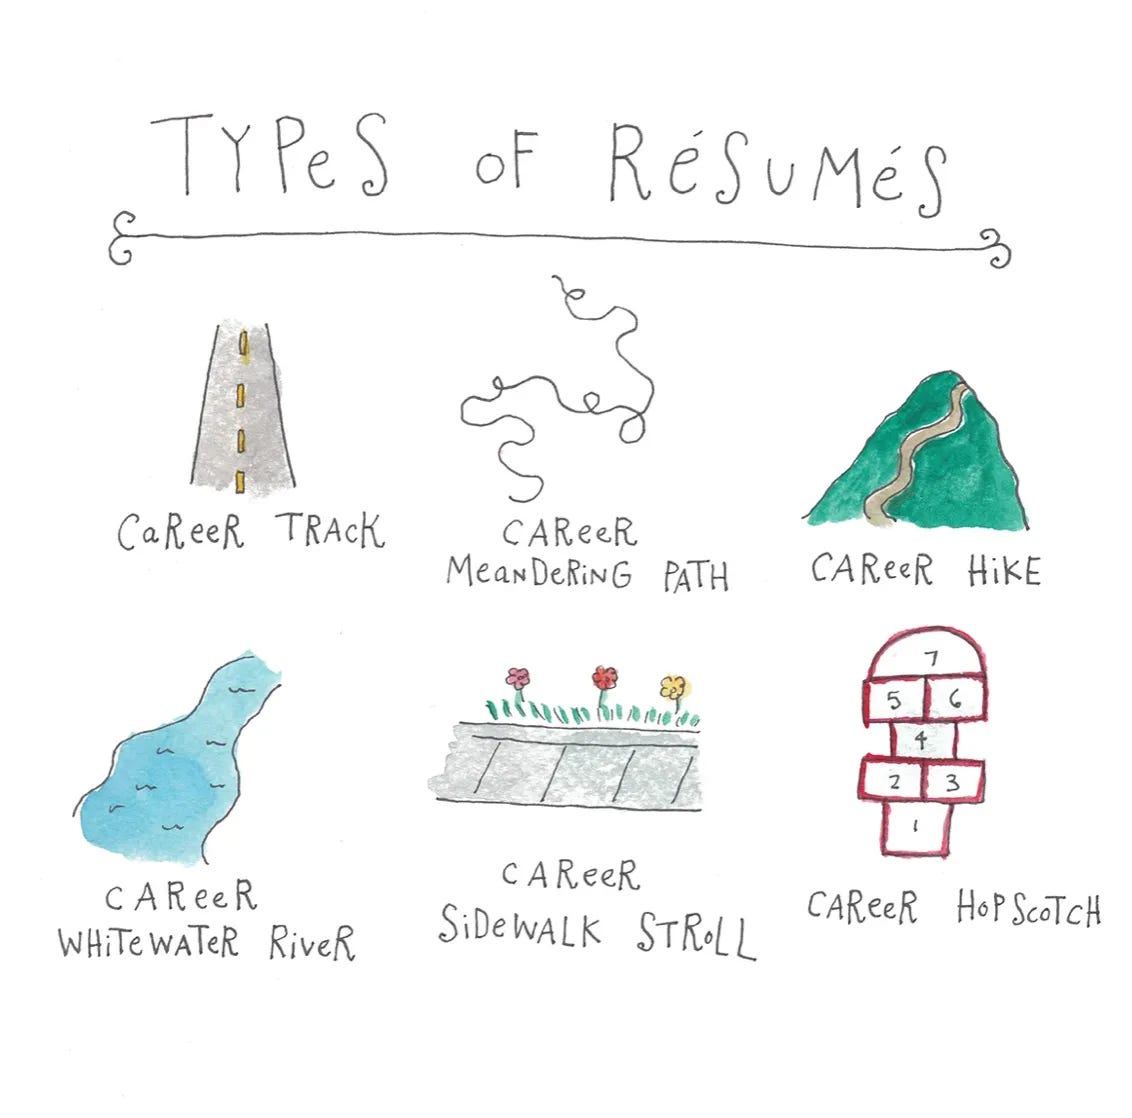 TYPeS oF RéSUMéS
CaReeR TRAcK
CAReeR
MeaNDeRiNG PATH
CAReeR HiKE
7
5 6
4
2 3
1
CAReeR
WHiTeWATeR RiveR
CAReeR
SiDeWALK STRoLL
CAReeR HoPScoTCH